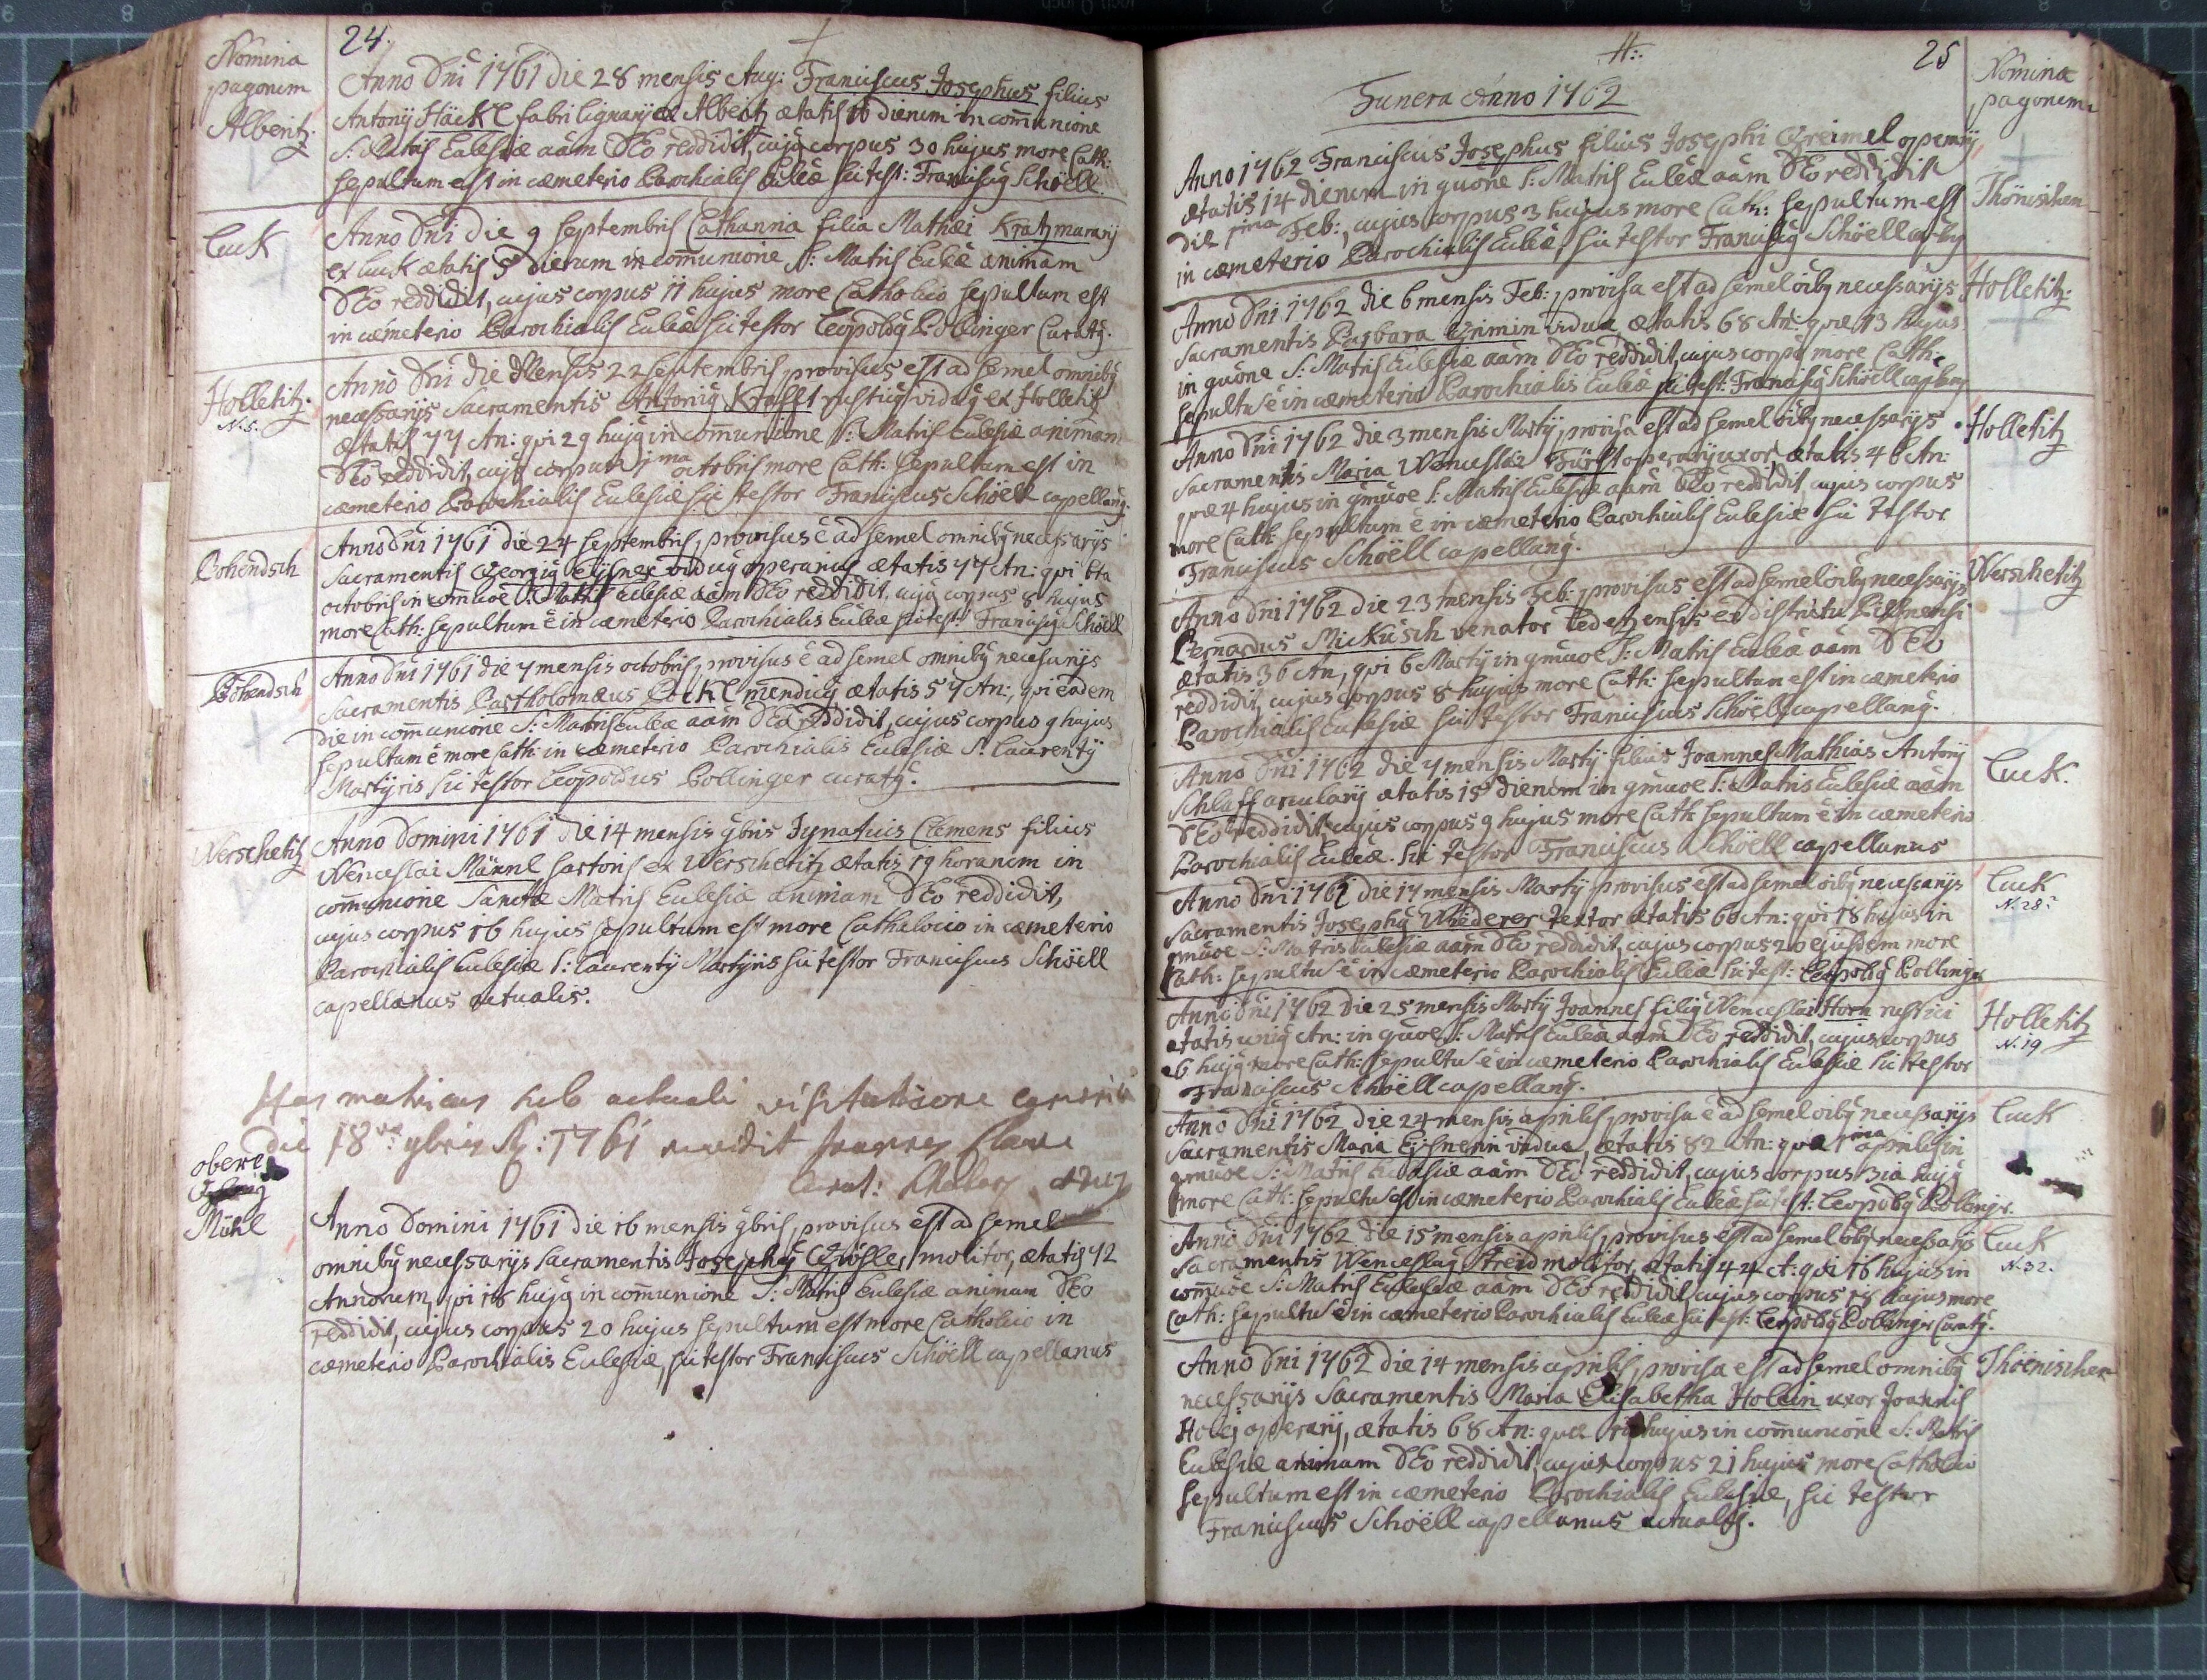 24.
Nomina
pagorum
Alberitz.
Anno Dni 1761 die 28 mensis Aug: Franciscus Josephus filius
Antonÿ Häckl fabri lignarÿ ex Alberitz ætatis 16 dierum in com̄unione
S: Matris Ecclesiæ aām DEo reddidit, cujq corpus 30 hujus more Cath:
sepultum est in cæmeterio Parochialis Eccleæ sic test: Franciscq Schöell.
Luck
Anno Dni die 9 Septembris Catharina filia Mathæi Kratzmararÿ
ex Luck ætatis 5 dierum in com̄unione S: Matris Eccleæ animam
DEo reddidit, cujus corpus 11 hujus more Catholico sepultum est
in cæmeterio Parochialis Eccleæ sic testor Leopoldq Pollinger Curatq.
Holletitz.
N. 5.
Anno Dni die Mensis 22 Septembris provisus est ad semel omnibq
necessarÿs Sacramentis Antoniq Krafft rusticq viduq ex Holletitz
ætatis 77 An: qvi 29 hujq in com̄unione S: Matris Ecclesiæ animam
DEo reddidit, cujq corpus 1ma octobris more Cath: sepultum est in
cæmeterio Parochialis Ecclesiæ sic testor Franciscus Schöell capellanq.
Pohendsch
Anno Dni 1761 die 24 Septembris, provisus ē ad semel omnibq necessarÿs
Sacramentis Georgiq Eÿsner viduq operariq ætatis 77 An: qvi 6ta
octobris in com̄uoe S: Matris Ecclesiæ aām DEo reddidit. cujq corpus 8 hujus
more Cath: sepultum ē in cæmeterio Parochialis Eccleæ sic test: Franciscq Schöell
Pohendsch
Anno Dni 1761 die 7 mensis octobris, provisus ē ad semel omnibq necessarÿs
Sacramentis Bartholomæus Böckl mendicq ætatis 57 An:, qvi eadem
die in com̄unione S: Matris Eccleæ aām DEo reddidit, cujus corpus 9 hujus
sepultum ē more Cath: in cæmeterio Parochialis Ecclesiæ S: Laurentÿ
Martÿris sic testor Leopoldus Pollinger curatq.
Werschetitz
Anno Domini 1761 die 14 mensis 9bris Ignatius Clemens filius
Wenceslai Männl sartoris ex Werschetitz ætatis 19 horarum in
com̄unione Sanctæ Matris Ecclesiæ animam DEo reddidit,
cujus corpus 16 hujus sepultum est more Catholoico in cæmeterio
Parochialis Ecclesiæ S: Laurentÿ Martÿris sic testor Franciscus Schöell
capellanus actualis.
Has matricas sub actuali visitatione
die 18va 9bris 1761 vidit
obere
Mühl
Anno Domini 1761 die 16 mensis 9bris, provisus est ad semel
omnibq necessarÿs Sacramentis Josephq Grösler, molitor, ætatis 42
Annorum, qvi 18 hujq in com̄unione S: Matris Ecclesiæ animam DEo
reddidit, cujus corpus 20 hujus sepultum est more Catholico in
cæmeterio Parochialis Ecclesiæ, sic testor Franciscus Schöell capellanus
25
Nomina
pagorum
Funera Anno 1762
Thönischen
Anno 1762 Franciscus Josephus filius Josephi Greimel operarÿ,
ætatis 14 dierum in quōne S: Matris Eccleæ aām DEo reddidit
die 1ma Feb:, cujus corpus 3 hujus more Cath: sepultum est
in cæmeterio Parochialis Eccleæ, sic testor Franciscq Schöell
Holletitz.
Anno Dni 1762 die 6 mensis Feb: provisa est ad semel oibq necessarÿs
Sacramentis Barbara Grimin vidua ætatis 68 An: qvæ 13 hujus
in quōne S: Matris Ecclesiæ aām DEo reddidit, cujus corpq more Cath.
sepultu ē in cæmeterio Parochialis Eccleæ sic test: Franciscq Schöell
Holletitz
Anno Dni 1762 die 3 mensis Martÿ, provisa est ad semel oibq necessarÿs
Sacramentis Maria Wenceslai Fürst operarÿ uxor, ætatis 46 An:
qvæ 4 hujus in qmuoe S: Matris Ecclesiæ aām DEo reddidit, cujus corpus
more Cath: sepultum ē in cæmeterio Parochialis Ecclesiæ sic testor
Franciscus Schöell capellanq.
Werschetitz
Anno Dni 1762 die 23 mensis Feb: provisus est ad semel oibq necessarÿs
Bernardus Mickusch venator Tedetzensis ex districtu Pilsnensi
ætatis 36 An, qvi 6 Martÿ in qmuoe S: Matris Eccleæ aām DEo
reddidit, cujus corpus 8 hujus more Cath: sepultum est in cæmeterio
Parochialis Ecclesiæ sic testor Franciscus Schöell capellanq.
Luck.
Anno Dni 1762 die 7 mensis Martÿ filius Joannes Mathias Antonÿ
Schlaff arcularÿ ætatis 15 dierum in qmuoe S: Matris Ecclesiæ aām
DEo reddidit, cujus corpus 9 hujus more Cath sepultum ē in cæmeterio
Parochialis Eccleæ. sic testor Franciscus Schöell capellanus
Luck
N. 28.
Anno Dni 1762 die 17 mensis Martÿ provisus est ad semel oibq necessarÿs
Sacramentis Josephq Wiederer textor ætatis 60 An: qvi 18 hujus in
qmuoe S: Matris Ecclesiæ aām DEo reddidit, cujus corpus 20 ejusdem more
Cath: sepultu ē in cæmeterio Parochialis Eccleæ sic test: Leopoldq Pollinger
Holletitz
N. 19
Anno Dni 1762 die 25 mensis Martÿ Joannes filiq Wenceslai Horn rustici
ætatis uniq An: in quoe S: Matris Eccleæ aām DEo reddidit, cujus corpus
26 hujq more Cath: sepultu ē in cæmeterio Parochialis Ecclesiæ sic testor
Franciscus Schöell capellanq.
Luck
Anno Dni 1762 die 24 mensis aprilis, provisa ē ad semel oibq necessarÿs
Sacramentis Maria Eÿsnerin vidua, ætatis 82 An: qvæ 1ma aprilis in
qmuoe S: Matris Ecclesiæ aām DEo reddidit, cujus corpus 3ia hujq
more Cath: sepultu est in cæmeterio Parochialis Eccleæ sic test: Leopoldq Pollinger.
Luck
N. 32.
Anno Dni 1762 die 15 mensis aprilis, provisus est ad semel oibq necessarÿs
Sacramentis Wenceslaq Streid molitor, ætatis 44 A: qvi 16 hujus in
com̄uoe S: Matris Ecclesiæ aām DEo reddidit, cujus corpus 18 hujus more
Cath: sepultu ē in cæmeterio Parochialis Eccleæ sic test: Leopoldq Pollinger Curatq.
Thöenischen
Anno Dni 1762 die 14 mensis aprilis, provisa est ad semel omnibq
necessarÿs Sacramentis Maria Elisabetha Hollin uxor Joannis
operarÿ, ætatis 68 An: quæ hujus in com̄unione S: Matris
Ecclesiæ animam DEo reddidit, cujus corpus 21 hujus more Catholico
sepultum est in cæmeterio Parochialis Ecclesiæ, sic testor
Franciscus Schöell capellanus actualis.